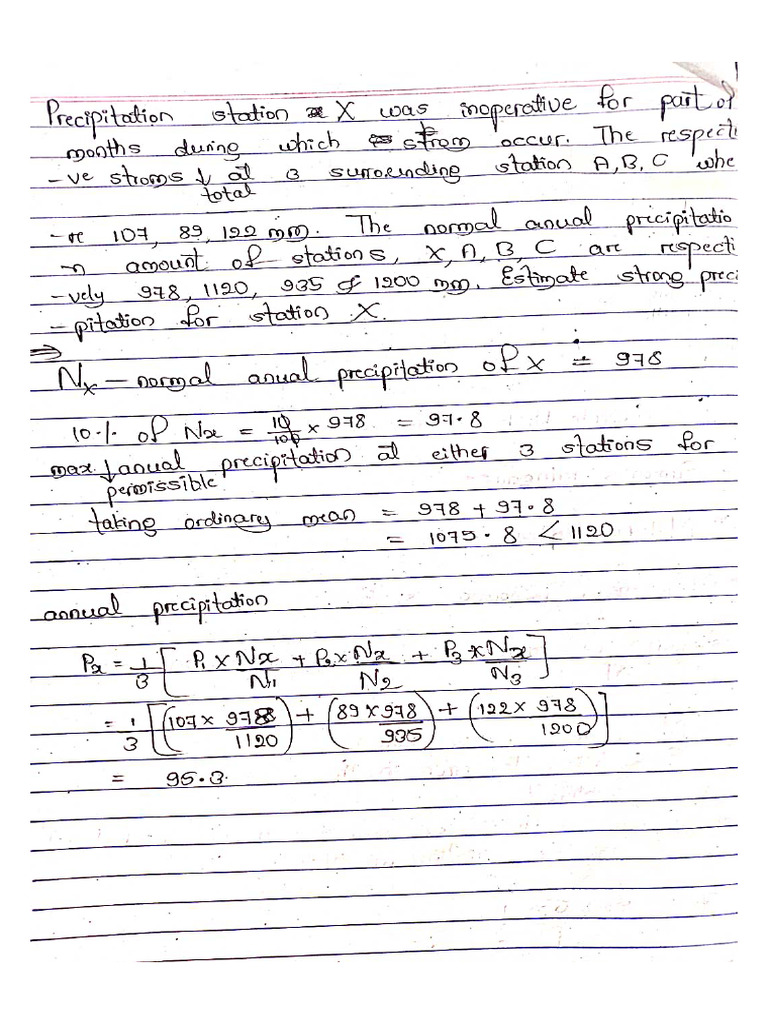 Precipitation station X was inoperative for part of
months during which strom occur. The respecti
-ve stroms total at 3 surrounding station A, B, C whe
-re 107, 89, 122 mm. The normal anual precipitatio
-n amount of stations, X, A, B, C are respecti
-vely 978, 1120, 935 & 1200 mm. Estimate strong preci
-pitation for station X.
⇒
Nx – normal anual precipitation of X = 978
10% of Nx = 10/100 × 978 = 97.8
max permissible anual precipitation at either 3 stations for
taking ordinary mean = 978 + 97.8
= 1075.8 < 1120
annual precipitation
Px = 1/3 [ P1 × Nx/N1 + P2 × Nx/N2 + P3 × Nx/N3 ]
= 1/3 [ (107 × 978/1120) + (89 × 978/935) + (122 × 978/1200) ]
= 95.3.